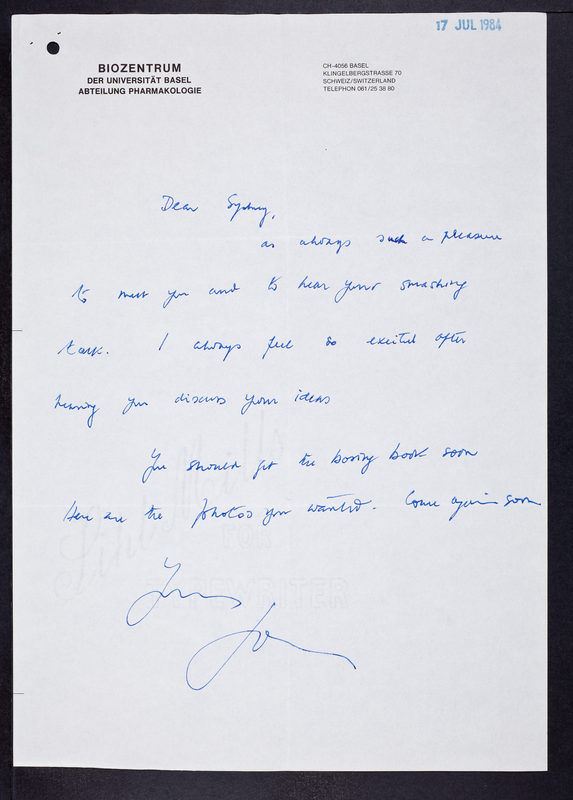 17 JUL 1984
BIOZENTRUM
DER UNIVERSITÄT BASEL
ABTEILUNG PHARMAKOLOGIE
CH-4056 BASEL
KLINGELBERGSTRASSE 70
SCHWEIZ/SWITZERLAND
TELEPHON 061/25 38 80
Dear Sydney,
as always such a pleasure
to meet you and to hear your smashing
talk. I always feel so excited after
hearing you discuss your ideas
You should get the boxing book soon
Here are the photos you wanted. Come again soon
Yours
FOR
WRITER